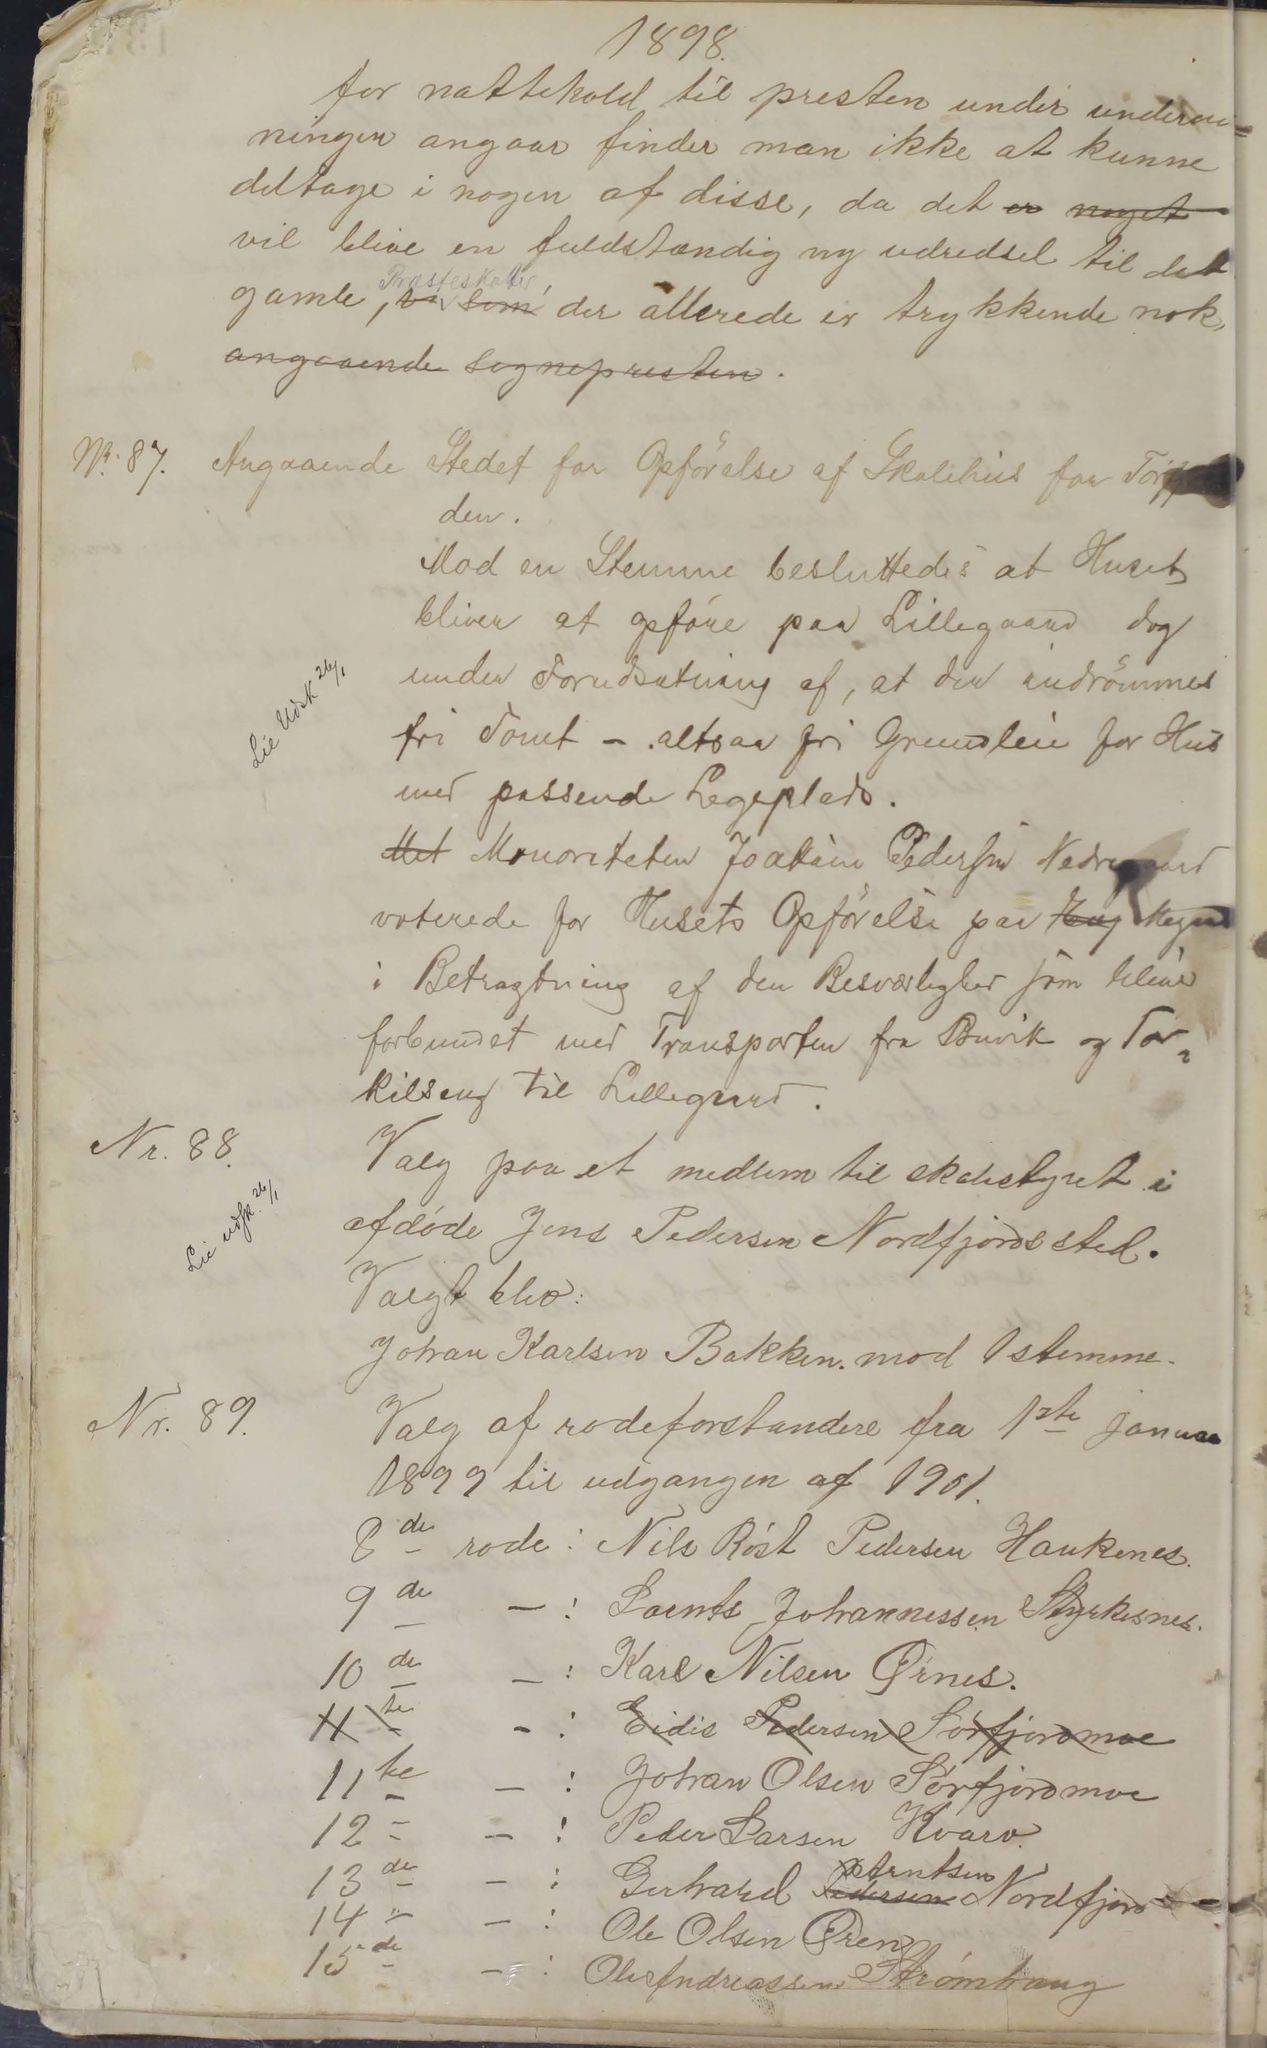 1898.
for nattehold til presten under underviis=
ningen angaar finder man ikke at kunne
deltage i nogen af disse, da det er noget
vil blive en fuldstændig ny udredsel til det
Præsteskatter
gamle, som der allerede er trykkende nok,
angaaende sognepresten.
Nr. 87. Angaaende Stedet for Opførelse af Skolehus for
den.
Mod en Stemme besluttedes at Huset
bliver at opføre paa Lillegaard dog
under Forudsætning af, at der indrømmes
fri Tomt - altsaa fri Grundleie for Hus
med passende Legeplads.
Lie Udsk 26/1
Met Minoriteten Joakim Pedersen Nedregaard
voterede for Husets Opførelse paa Hag
i Betragtning af den Besværlighed som bliver
forbundet med Transporten fra Buvik og Tor=
kilseng til Lillegaard.
Nr. 88. Valg paa et medlem til skolestyret i
afdøde Jens Pedersen Nordfjords sted.
Lie udsk. 26/1
Valgt blev:
Johan Karlsen Bakken. mod 1 stemme.
Nr. 89. Valg af rodeforstandere fra 1ste januar
1899 til udgangen af 1901.
8de rode: Nils Røst Pedersen Haukenes.
9de - : Lornts Johannessen Styrkesnes.
10de - : Karl Nilsen Ørnes.
11te - : Eidis Pedersen Sørfjordmoe
11te - : Johan Olsen Sørfjordmoe
12- - : Peder Larsen Kvarv.
Berntsen
13de - : Gerhard Pedersen Nordfjord
14- - : Ole Olsen Øren
15de - : Ole Andreassen Strømhaug